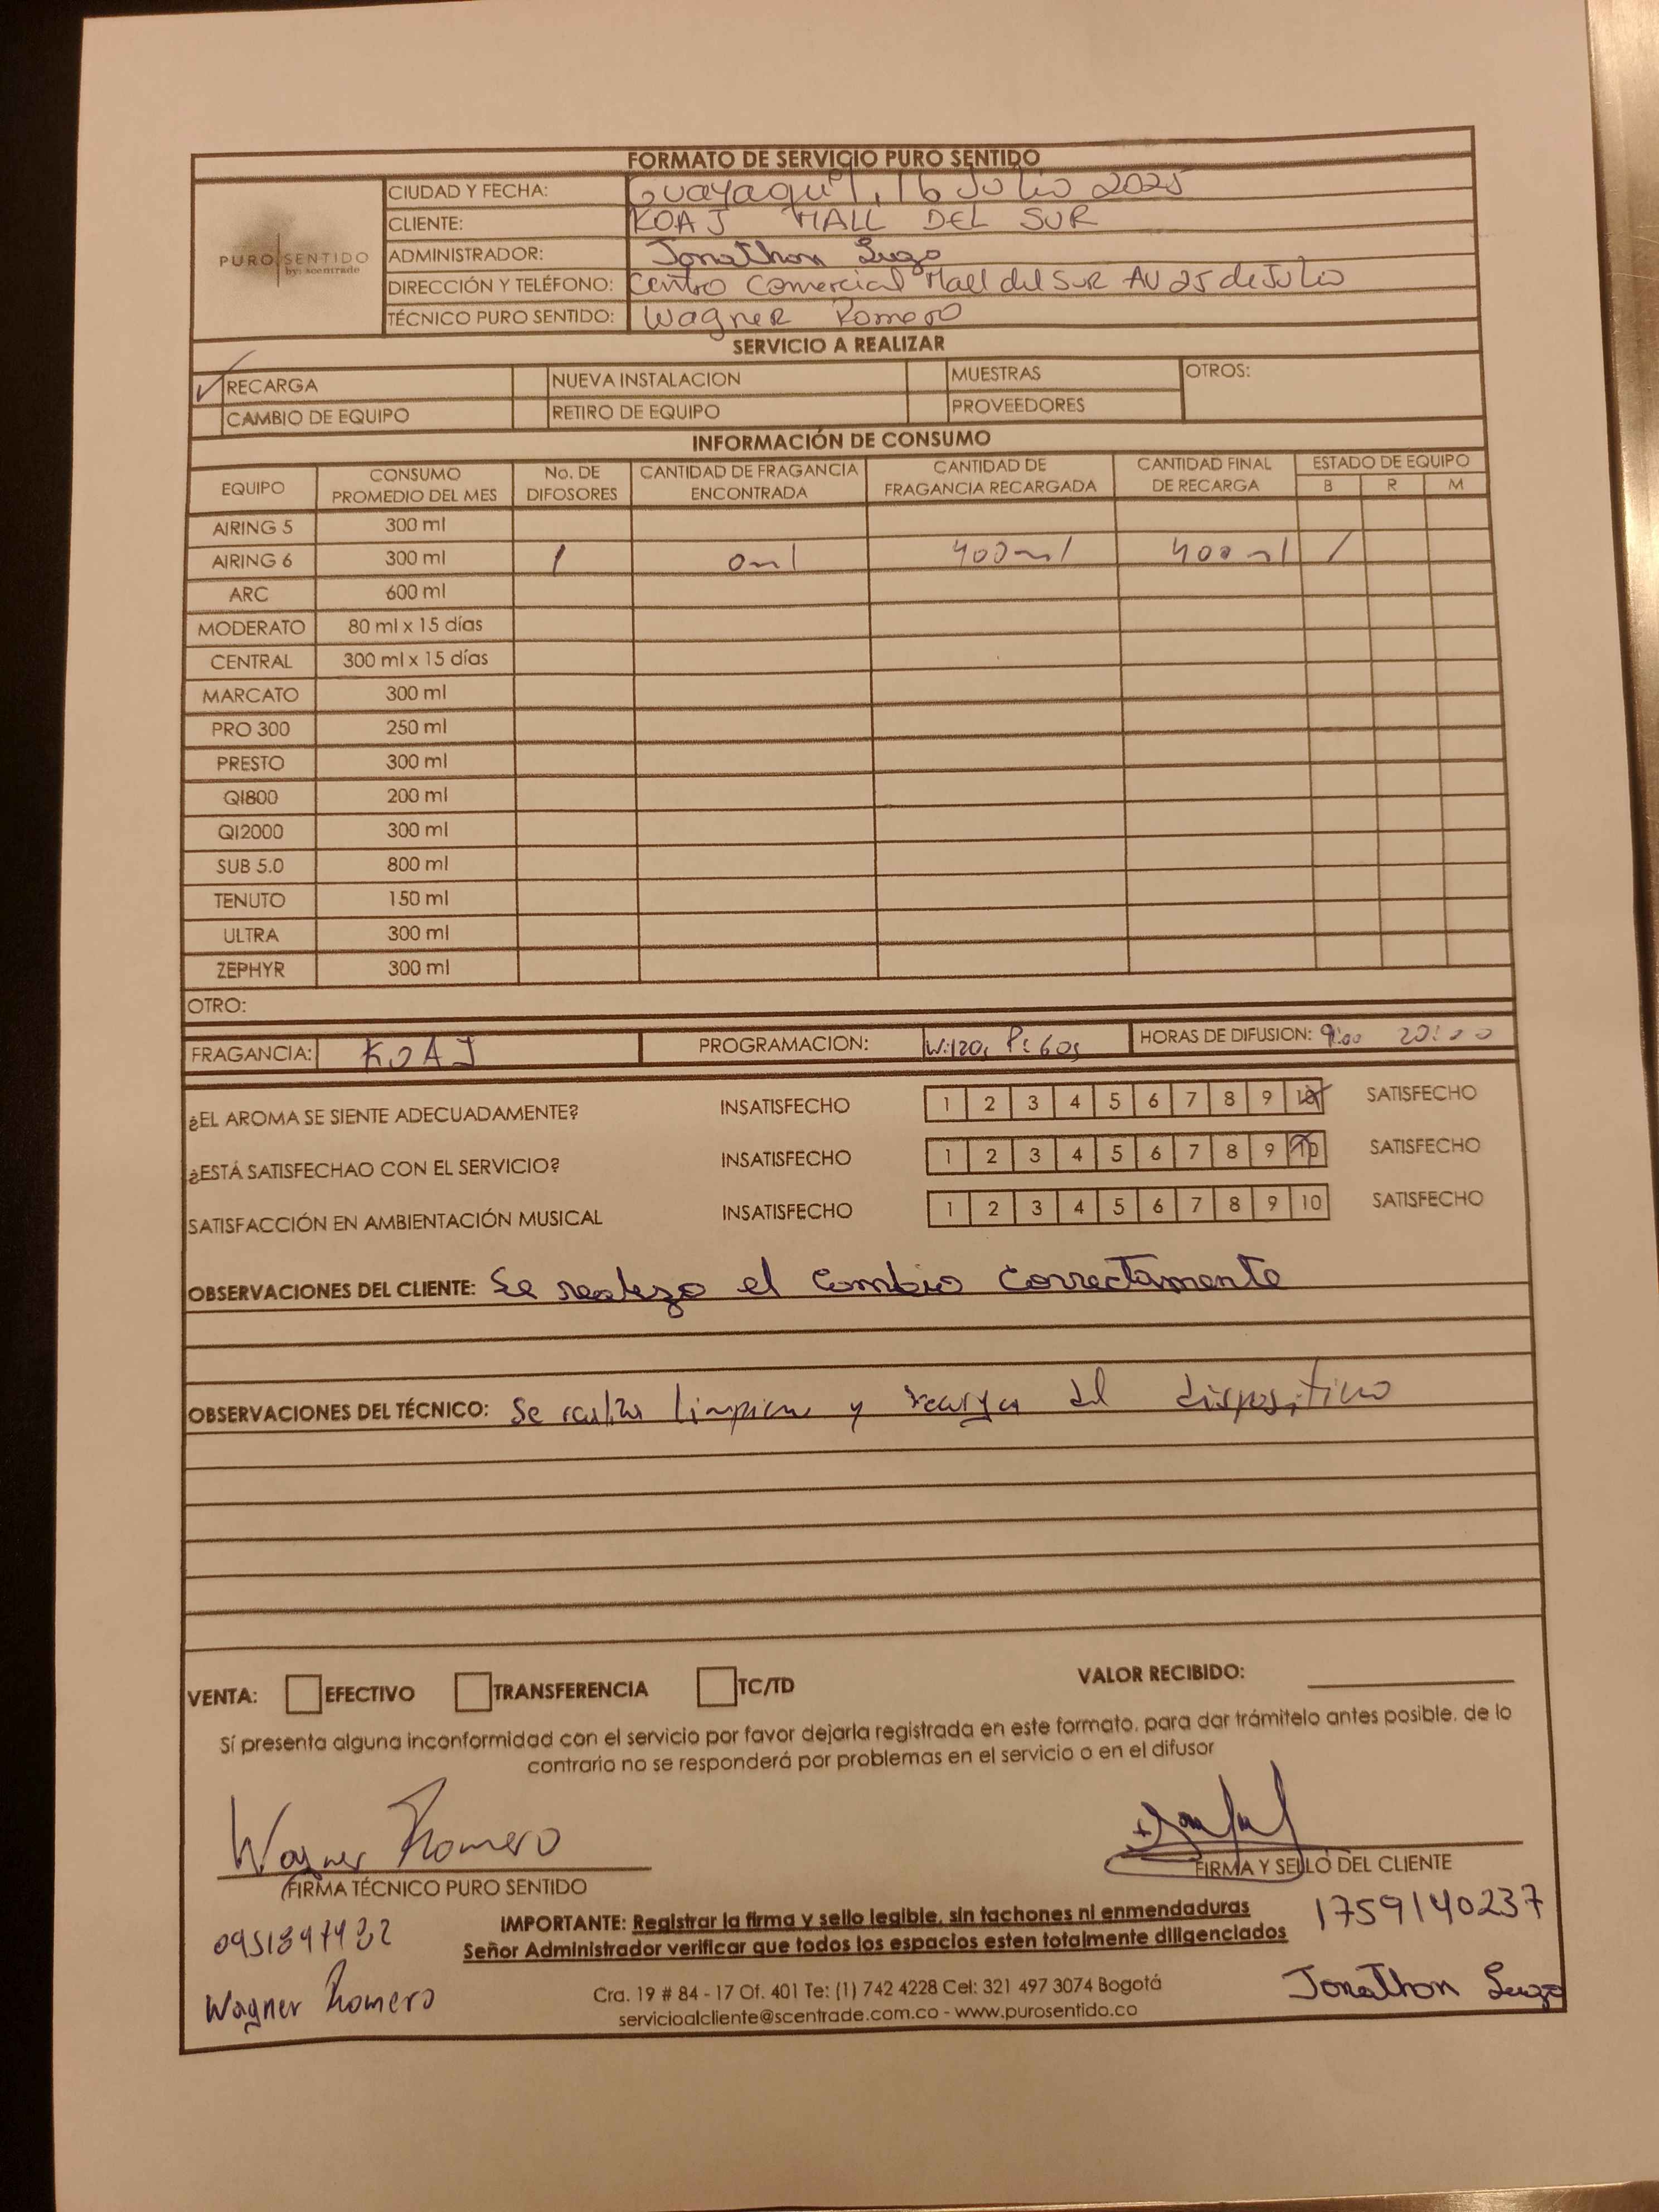 FORMATO DE SERVICIO PURO SENTIDO
PURO SENTIDO
by: scentrade
CIUDAD Y FECHA: Guayaquil, 16 Julio 2025
CLIENTE: KOAJ MALL DEL SUR
ADMINISTRADOR: Jonathon Lugo
DIRECCIÓN Y TELÉFONO: Centro Comercial Mall del Sur AV 25 de Julio
TÉCNICO PURO SENTIDO: Wagner Romero
SERVICIO A REALIZAR
✓ RECARGA NUEVA INSTALACION MUESTRAS OTROS:
CAMBIO DE EQUIPO RETIRO DE EQUIPO PROVEEDORES
INFORMACIÓN DE CONSUMO
EQUIPO CONSUMO PROMEDIO DEL MES No. DE DIFOSORES CANTIDAD DE FRAGANCIA ENCONTRADA CANTIDAD DE FRAGANCIA RECARGADA CANTIDAD FINAL DE RECARGA ESTADO DE EQUIPO
B R M
AIRING 5 300 ml
AIRING 6 300 ml 1 0ml 400ml 400ml /
ARC 600 ml
MODERATO 80 ml x 15 días
CENTRAL 300 ml x 15 días
MARCATO 300 ml
PRO 300 250 ml
PRESTO 300 ml
QI800 200 ml
QI2000 300 ml
SUB 5.0 800 ml
TENUTO 150 ml
ULTRA 300 ml
ZEPHYR 300 ml
OTRO:
FRAGANCIA: KOAJ PROGRAMACION: W:120s P:60s HORAS DE DIFUSION: 9:00 20:00
¿EL AROMA SE SIENTE ADECUADAMENTE? INSATISFECHO 1 2 3 4 5 6 7 8 9 10 SATISFECHO
¿ESTÁ SATISFECHAO CON EL SERVICIO? INSATISFECHO 1 2 3 4 5 6 7 8 9 10 SATISFECHO
SATISFACCIÓN EN AMBIENTACIÓN MUSICAL INSATISFECHO 1 2 3 4 5 6 7 8 9 10 SATISFECHO
OBSERVACIONES DEL CLIENTE: Se realizo el cambio correctamente
OBSERVACIONES DEL TÉCNICO: Se realiza limpieza y recarga del dispositivo
VENTA: EFECTIVO TRANSFERENCIA TC/TD VALOR RECIBIDO:
Sí presenta alguna inconformidad con el servicio por favor dejarla registrada en este formato, para dar trámitelo antes posible, de lo
contrario no se responderá por problemas en el servicio o en el difusor
Wagner Romero
FIRMA TÉCNICO PURO SENTIDO FIRMA Y SELLO DEL CLIENTE
IMPORTANTE: Registrar la firma y sello legible, sin tachones ni enmendaduras 1759140237
Señor Administrador verificar que todos los espacios esten totalmente diligenciados
Wagner Romero Cra. 19 # 84 - 17 Of. 401 Te: (1) 742 4228 Cel: 321 497 3074 Bogotá Jonathon Lugo
servicioalcliente@scentrade.com.co - www.purosentido.co